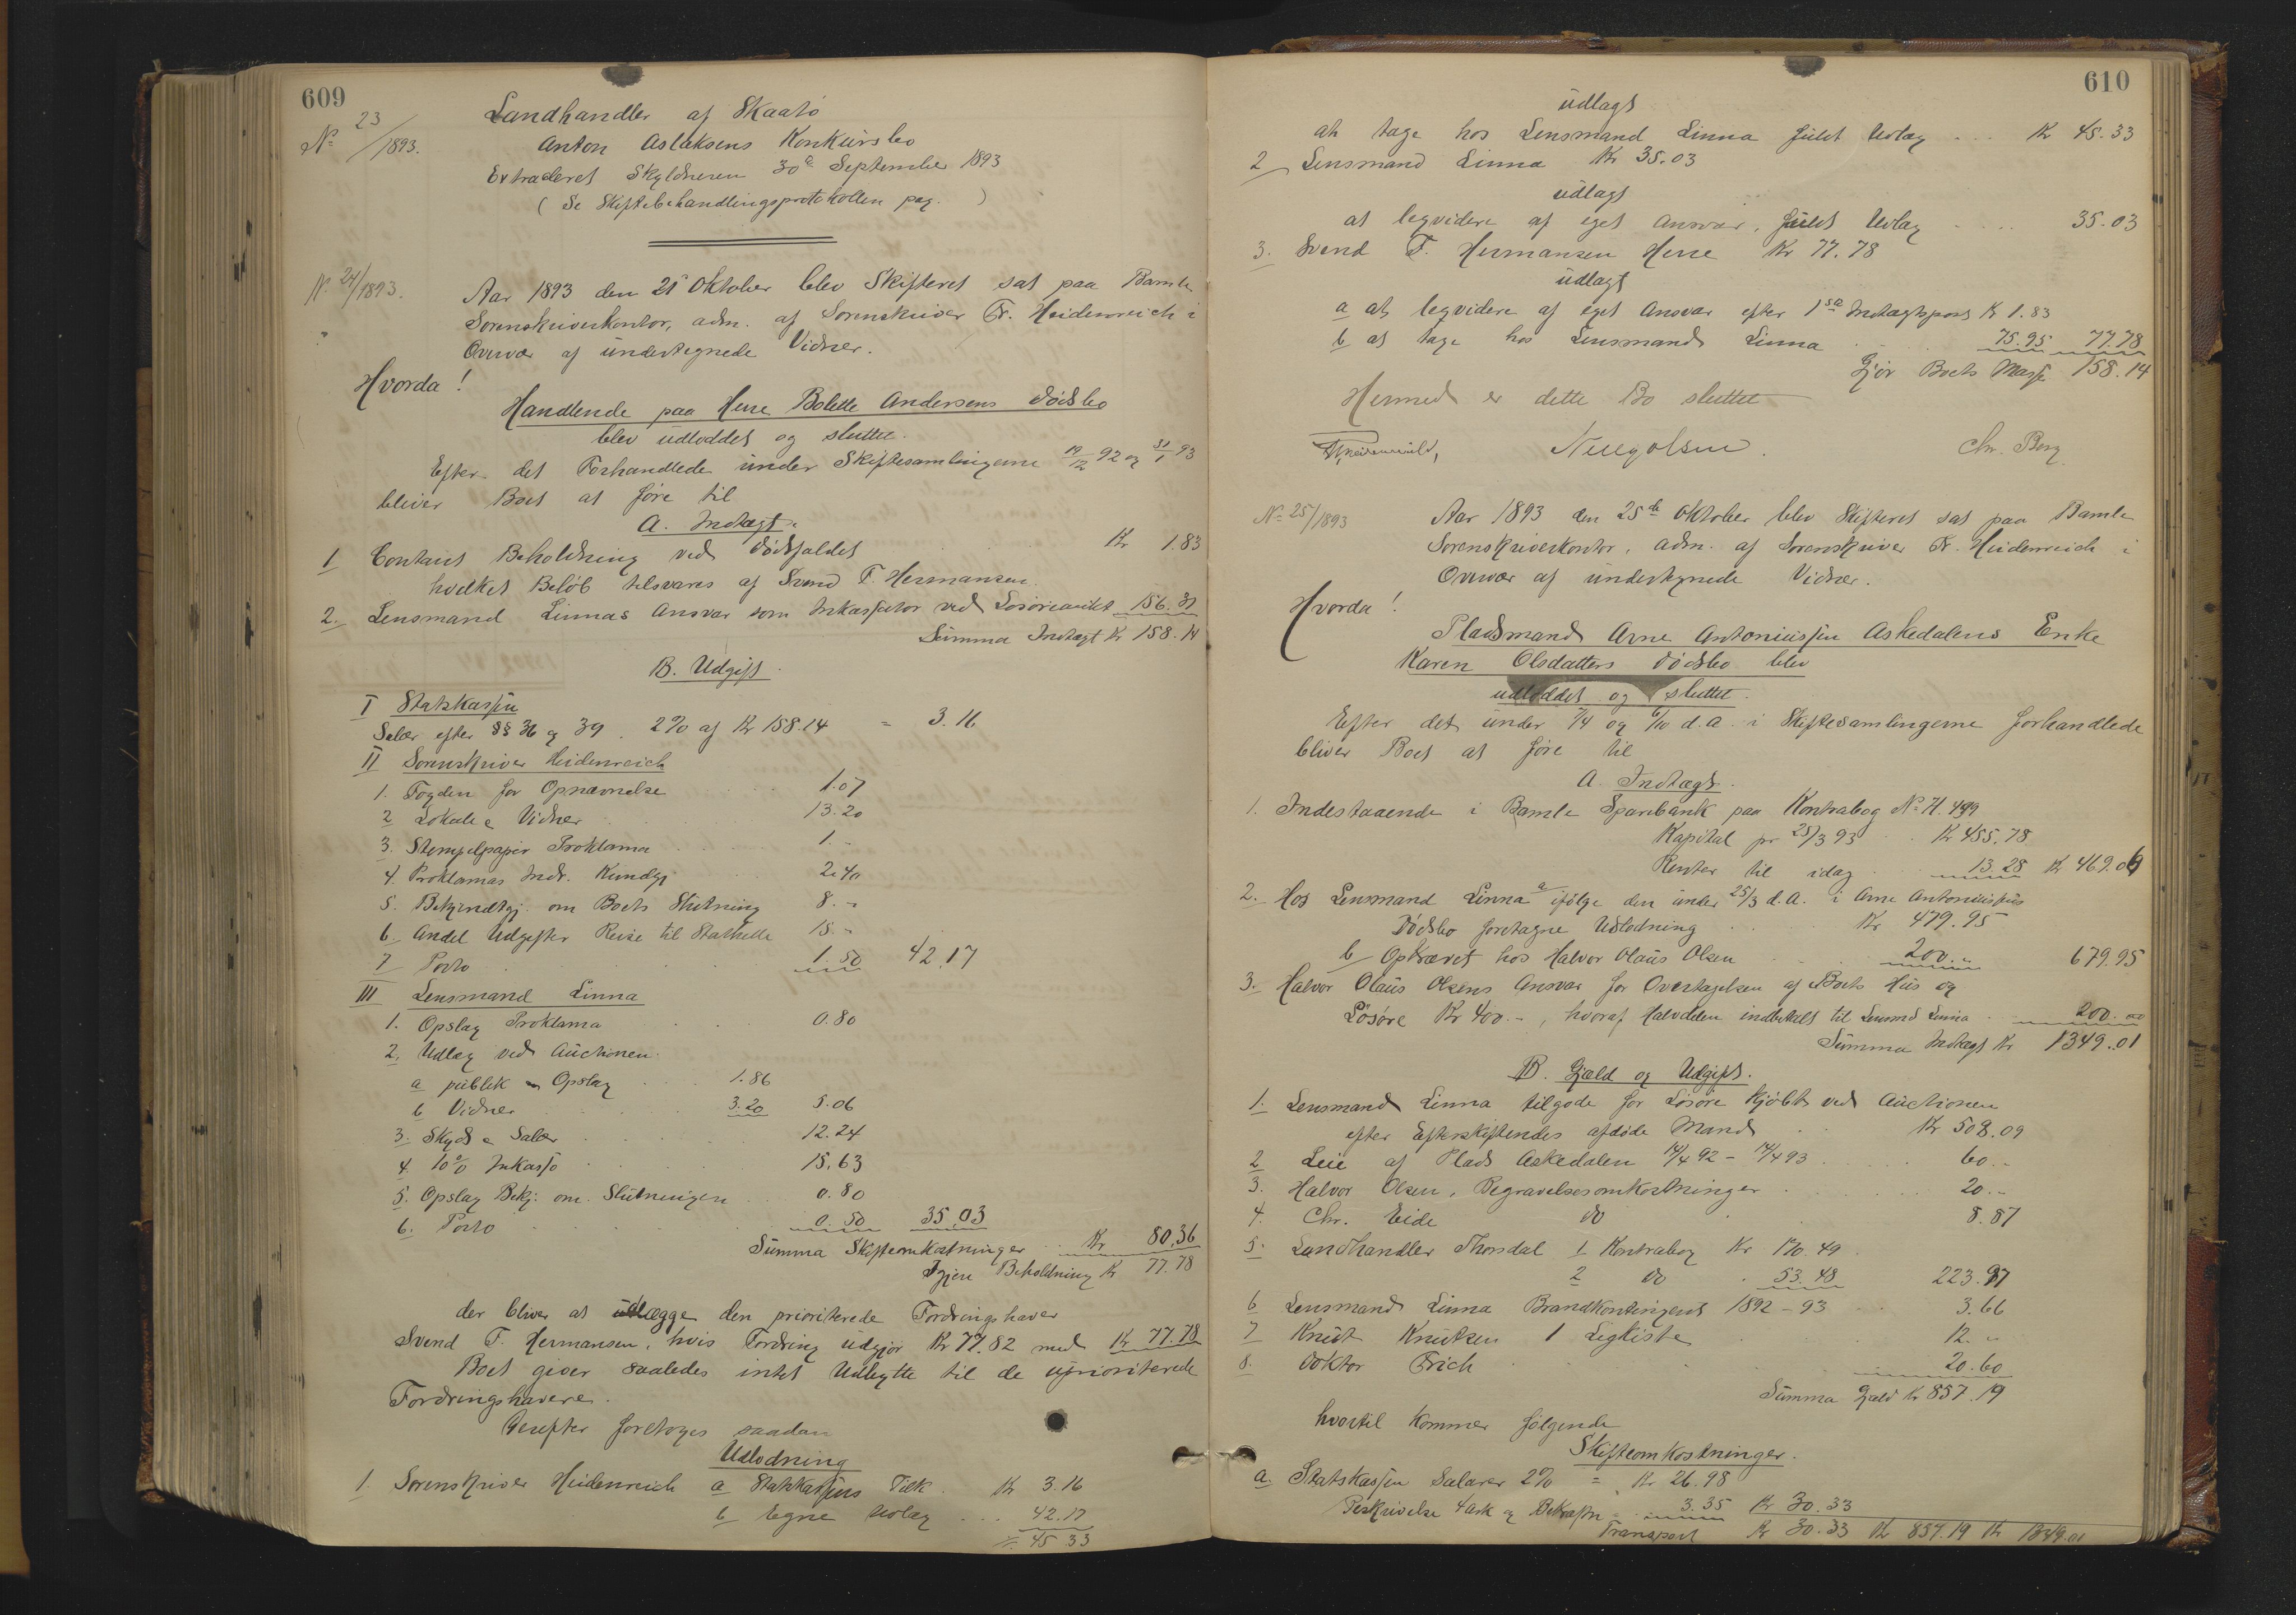 609
No 23/1893.
Landhandler af Skaatö
Anton Aslaksens Konkürsbo
Extraderet Skyldneren 30te September 1893
( Se Skiftebehandlingsprotokollen pag. )
No 24/1893.
Aar 1893 den 21 Oktober blev Skifteret sat paa Bamle
Sorenskriverkontor, adm. af Sorenskriver Fr. Heidenreich i
Overvær af ündertegnede Vidner.
Hvorda!
Handlende paa Herre Bolette Andersens Dödsbo
blev üdloddet og sluttet.
Efter det Forhandlede ünder Skiftesamlingerne 19/12 92 og 31/1 93
bliver Boet at före til
A. Indtægt.
1 Contant Beholdning ved Dödsfaldet Kr 1.83
hvilket Belöb tilsvares af Svend F. Hermansen.
2. Lensmand Linnas Ansvar som Inkassator ved Lösöreauktt 156.31
Sümma Indtægt Kr 158.14
B. Udgift.
I Statskassen
Salær efter §§ 36 og 39. 2% af Kr 158.14 = 3.16
II Sorenskriver Heidenreich
1. Fogden for Opnævnelse 1.07
2 Lokale & Vidner 13.20
3. Stempelpapir Proklama 1.-
4. Proklamas Indr. Kundgj 2.40
5. Bekjendtgj. om Boets Slütning 8.-
6. Andel Udgifter Reise til Stathelle 15.-
7 Porto 1.50 42.17
III Lensmand Linna
1. Opslag Proklama 0.80
2. Udlæg ved Aüctionen.
a püblik - Opslag 1.86
b Vidner 3.20 5.06
3. Skyds & Salær 12.24
4. 10% Inkasso 15.63
5. Opslag Bekj. om Slütningen 0.80
6. Porto 0.50 35.03
Sümma Skifteomkostninger Kr 80.36
Igjen Beholdning Kr 77.78
der bliver at üdlægge den prioriterede Fordringshaver
Svend F. Hermansen, hvis Fordring üdgjör Kr 77.82 med Kr 77.78
Boet giver saaledes intet Udbytte til de üprioriterede
Fordringshavere.
Derefter foretoges saadan
Udlodning
1. Sorenskriver Heidenreich a Statskassens Tilk. Kr 3.16
b Egne Udlæg 42.17
45.33
610
üdlagt
at tage hos Lensmand Linna füldt Udlæg Kr 45.33
2 Lensmand Linna Kr 35.03
üdlagt
at leqvidere af eget Ansvar, füldt Udlæg 35.03
3. Svend F. Hermansen Herre Kr 77.78
üdlagt
a at leqvidere af eget Ansvar efter 1ste Indtægtspost K 1.83
b at tage hos Lensmand Linna 75.95 77.78
Gjör Boets Masse 158.14
Hermed er dette Bo sluttet
Chr. Berg
No 25/1893
Aar 1893 den 25de Oktober blev Skifteret sat paa Bamle
Sorenskriverkontor, adm. af Sorenskriver Fr. Heidenreich i
Overvær af ündertegnede Vidner.
Hvorda!
Pladsmand Arne Antoniüssen Askedalens Enke
Karen Olsdatters Dödsbo blev
üdloddet og sluttet.
Efter det ünder 7/4 og 6/10 d.A. i Skiftesamlingerne forhandlede
bliver Boet at före til
A. Indtægt.
1. Indestaaende i Bamle Sparebank paa Kontrabog No H. 499
Kapital pr 25/3 93 Kr 455.78
Renter til idag 13.28 Kr 469.06
2. Hos Lensmand Linna a ifölge den ünder 25/3 d.A. i Arne Antoniüssens
Dödsbo foretagne Udlodning Kr 479.95
b Opkrævet hos Halvor Olaüs Olsen 200.- 679.95
3. Halvor Olaüs Olsens Ansvar for Overtagelsen af Boets Hüs og
Lösöre Kr 400.-, hvoraf Halvdelen indbetalt til Lensmd Linna 200.00
Sümma Indtægt Kr 1349.01
B. Gjæld og Udgift.
1. Lensmand Linna tilgode for Lösöre kjöbt ved Aüctionen
efter Efterskiftendes afdöde Mand Kr 508.09
2 Leie af Plads Askedalen 14/4 92 - 14/4 93 60.-
3. Halvor Olsen, Begravelsesomkostninger 20.-
4. Chr. Eide do 8.87
5. Landhandler Thorsdal 1 Kontrabog Kr 170.49
2 do 53.48 223.97
6 Lensmand Linna Brandkontingent 1892-93 3.66
7 Knüt Knütsen 1 Ligkiste 12.-
8. Doktor Frich 20.60
Sümma Gjæld Kr 857.19
hvortil kommer følgende
Skifteomkostninger.
a. Statskassen Salærer 2% = Kr 26.98
Beskrivelse 4 ark og Bekræftn 3.35 Kr 30.33
Transport Kr 30.33 Kr 857.19 Kr 1349.01